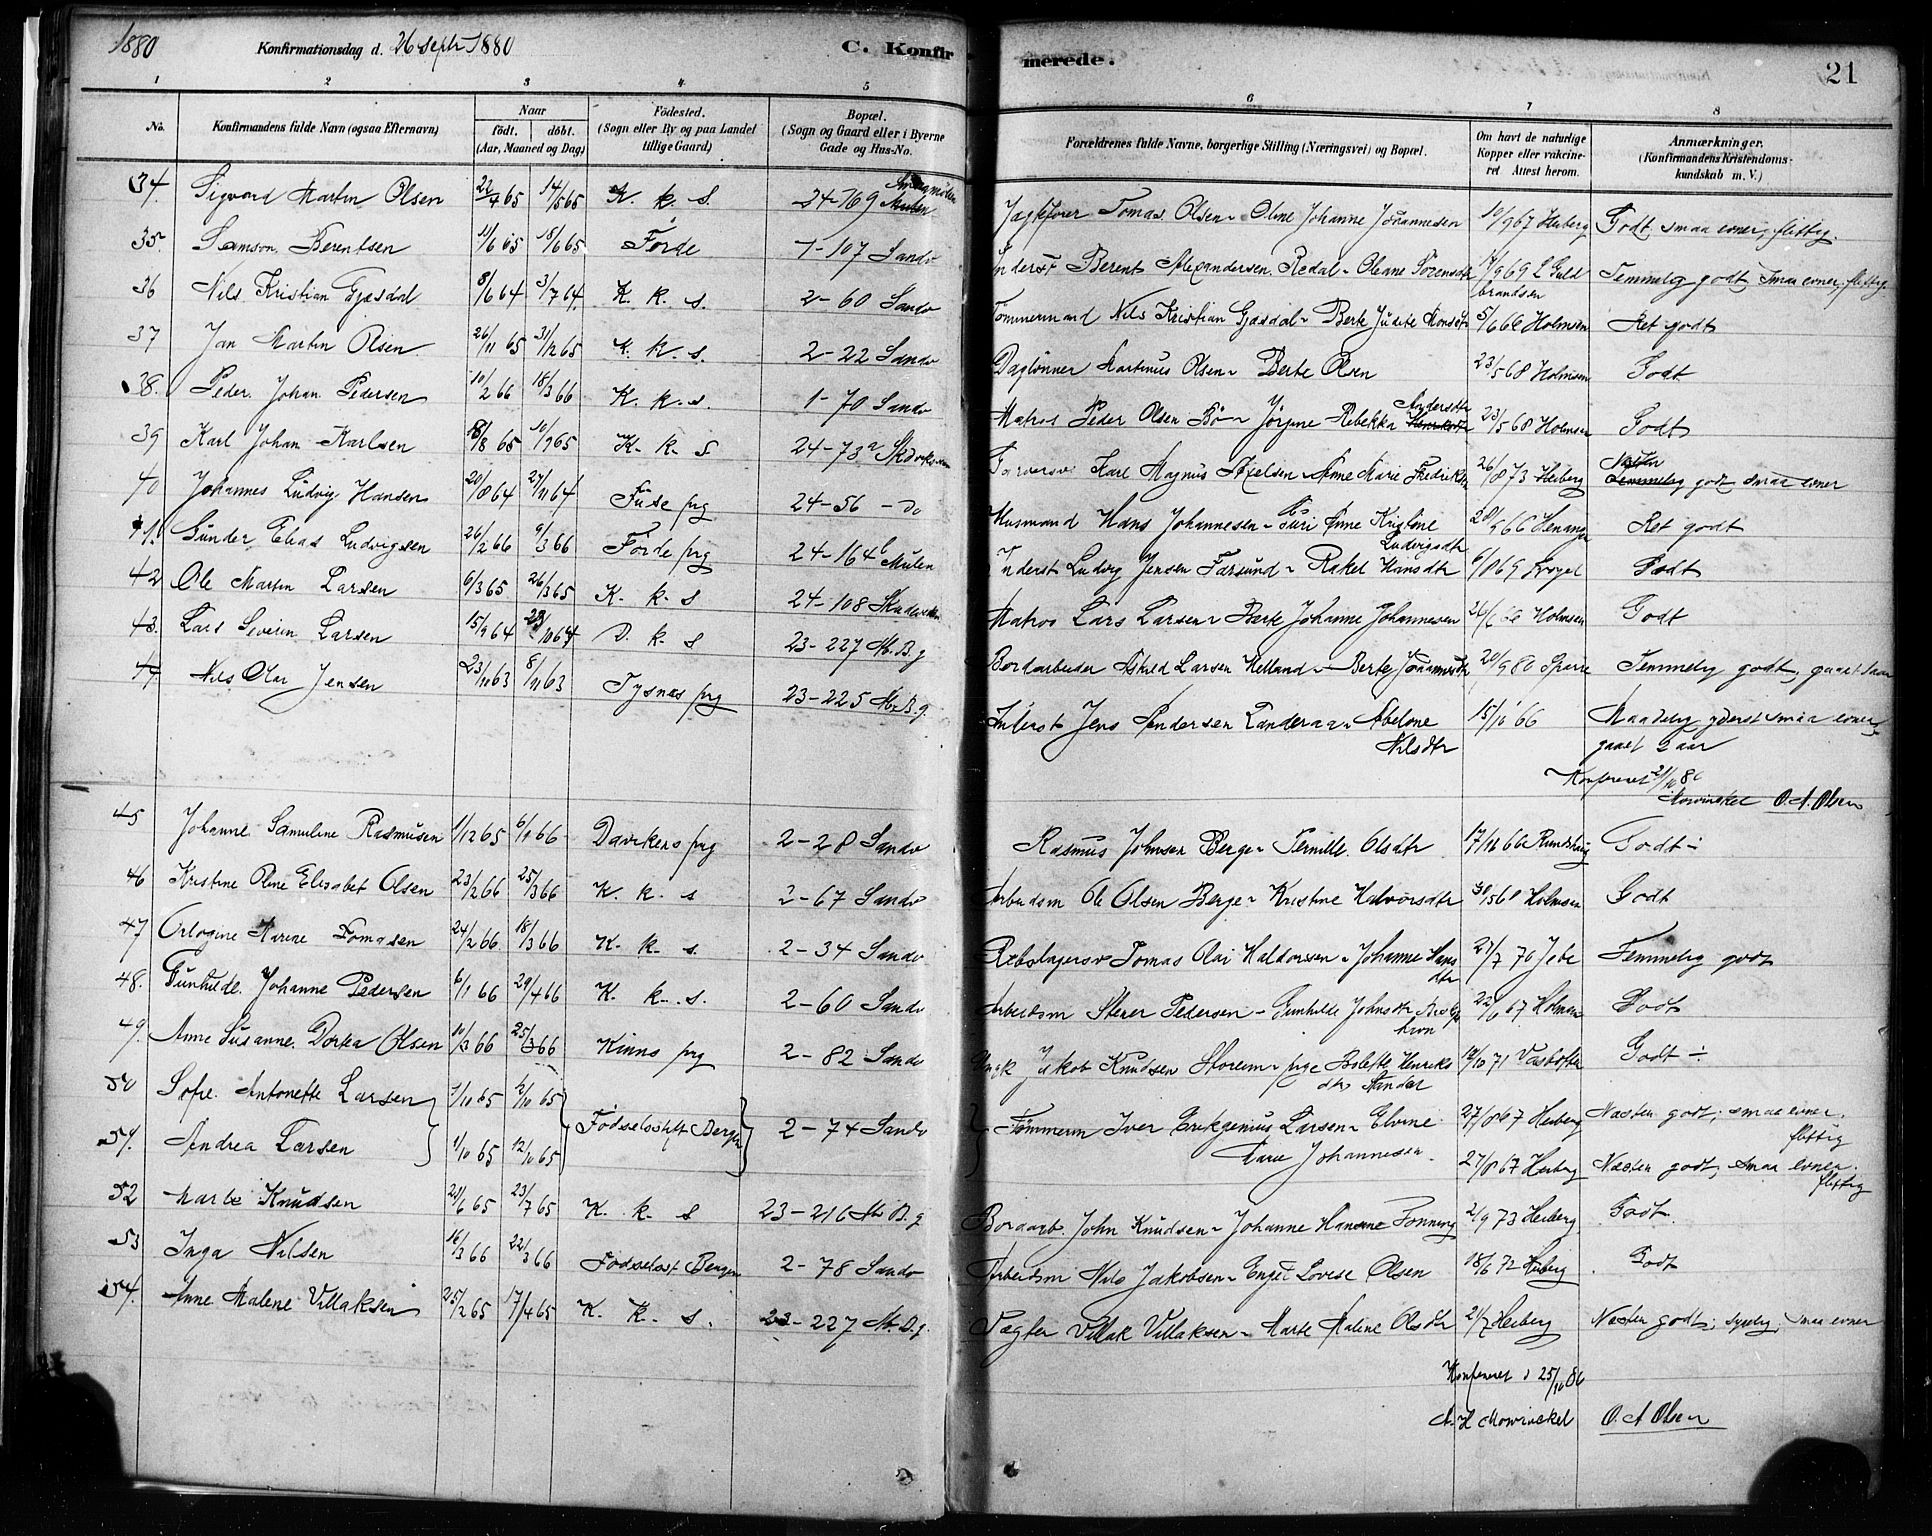 1880 Konfirmationsdag d. 26 septr 1880 C. Konfirmerede. 21
1 2 3 4 5 6 7 8
No. Konfirmandens fulde Navn (ogsaa Efternavn) Naar født. døbt. (Aar, Maaned og Dag) Fødested. (Sogn eller By og paa Landet tillige Gaard) Bopæl. (Sogn og Gaard eller i Byerne Gade og Hus-No. Forældrenes fulde Navne, borgerlige Stilling (Næringsvei) og Bopæl. Om havt de naturlige Kopper eller vakcineret Attest herom. Anmærkninger. (Konfirmandens Kristendomskundskab m. V.)
34. Sigvard Martin Olsen 22/4 65 14/5 65 K. k. s. 24-169 Mulen Jægtefører Tomas Olsen - Oline Johanne Johannesen 10/9 67 Heiberg Godt, smaa evner, flittig.
35. Samson Berentsen 11/6 65 18/6 65 Førde 1-107 Sandv Inderst Berent Alexandersen Redal - Oleane Sørensdtr /9 69 L Guldbrandsen Temmelig godt smaa evner, flittig
36 Nils Kristian Gjesdal 8/6 64 3/7 64 K. k. s. 2-60 Sandv Tømmermand Nils Kristian Gjesdal - Berte Judite Monsdtr 5/6 66 Holmsen Ret godt
37 Jan Martin Olsen. 26/11 65 31/12 65 K. k. s. 2-22 Sandv Daglønner Martinus Olsen - Berte Olsen 23/5 68 Holmsen Godt
38. Peder Johan Pedersen 10/2 66 18/3 66 K. k. s. 1-70 Sandv Matros Peder Olsen Bø - Jørgine Rebekka Andersdtr 23/5 68 Holmsen Godt
39 Karl Johan Karlsen 13/8 65 10/9 65 K. k. s 24-73a Skd Karl Magnus Axelsen - Anne Marie Fredriksen 26/8 73 Heiberg Næsten godt smaa evner
40 Johannes Ludvig Hansen 20/8 64 27/11 64 Fuse prg 24-56 - Do Husmand Hans Johannesen - Guri Anne Kristine Ludvigsdtr 28/9 66 Henanger Ret godt
41. Gunder Elias Ludvigsen 26/2 66 9/3 66 Førde prg 24-164b Mulen Inderst Ludvig Jensen Farsund - Rakel Hansdtr 6/8 69 Godt
42 Ole Martin Larsen 6/3 65 26/3 65 K. k. s 24-108 Matros Lars Larsen - Berte Johanne Johannesen 26/6 66 Holmsen Godt
43. Lars Severin Larsen 15/9 64 23/10 64 D. k. s 23-227 M. B. g Bordarbeider Larsen Helland - Berte Johannesdtr 20/9 80 Sparre Temmelig godt, gaaet
44 Nils Olai Jensen 23/10 63 8/11 63 Tysnæs prg 23-225 M. B. g. Inderst Jens Andersen Landeraa - Abelone Nilsdtr 15/10 66 Maadelig yderst smaa evner, gaaet 2 aar
Konfereret 21/10 80
Mowinckel O. A. Olsen
45 Johanne Samuline Rasmusen 1/12 65 6/1 66 Davikens prg 2-28 Sandv Rasmus Johnsen Berge - Pernille Olsdtr 17/10 66 Godt ÷
46 Kristine Oline Elisabet Olsen 23/2 66 25/3 66 K. k. s 2-67 Sandv Arbeidsm Ole Olsen Berge - Kristine Halvorsdtr 30/5 68 Holmsen Godt
47 Orlogine Marie Tomasen 24/2 66 18/3 66 K. k. s. 2-34 Sandv Rebslagersv Tomas Olai Haldorsen - Johanne Hansdtr 27/7 70 Jebe Temmelig godt
48. Gunhilde Johanne Pedersen 6/1 66 29/4 66 K. k. s. 2-60 Sandv Arbeidsm Stener Pedersen - Gunhilde Johnsdtr 22/6 67 Holmsen Godt
49. Anne Susanne Dortea Olsen 10/3 66 25/3 66 Kinns prg 2-82 Sandv Jakob Knudsen Storem - prge Bolette Henriksdtr Stander 12/10 71 Godt ÷
50 Sofie Antonette Larsen 1/10 65 12/10 65 Fødselsstift. Bergen 2-74 Sandv Tømmerm Iver Larsen - Elvine Marie Johannesen. 27/8 67 Heiberg Næsten godt; smaa evner. flittig
51. Andrea Larsen 1/10 65 12/10 65 27/8 67 Heiberg Næsten godt, smaa evner. flittig
52 Marte Knudsen 20/6 65 23/7 65 K. k. s 23-216 M B. g Bordarb. John Knudsen - Johanne Hansine Fonning 2/9 73 Heiberg Godt.
53 Inga Nilsen 16/3 66 22/3 66 Fødselsst Bergen 2-78 Sandv Arbeidsm Nils Jakobsen - Engel Lovise Olsen 18/6 72 Heiberg Godt
54. Anne Malene Villaksen 25/2 65 17/4 65 K. k. s. 23-227 M. B. g. Vægter Villak Villaksen - Marte Malene Olsdtr 21/7 Heiberg Næsten godt; sygelig; smaa evner
Konfereret d 25/10 86
A. H Mowinckel O. A Olsen